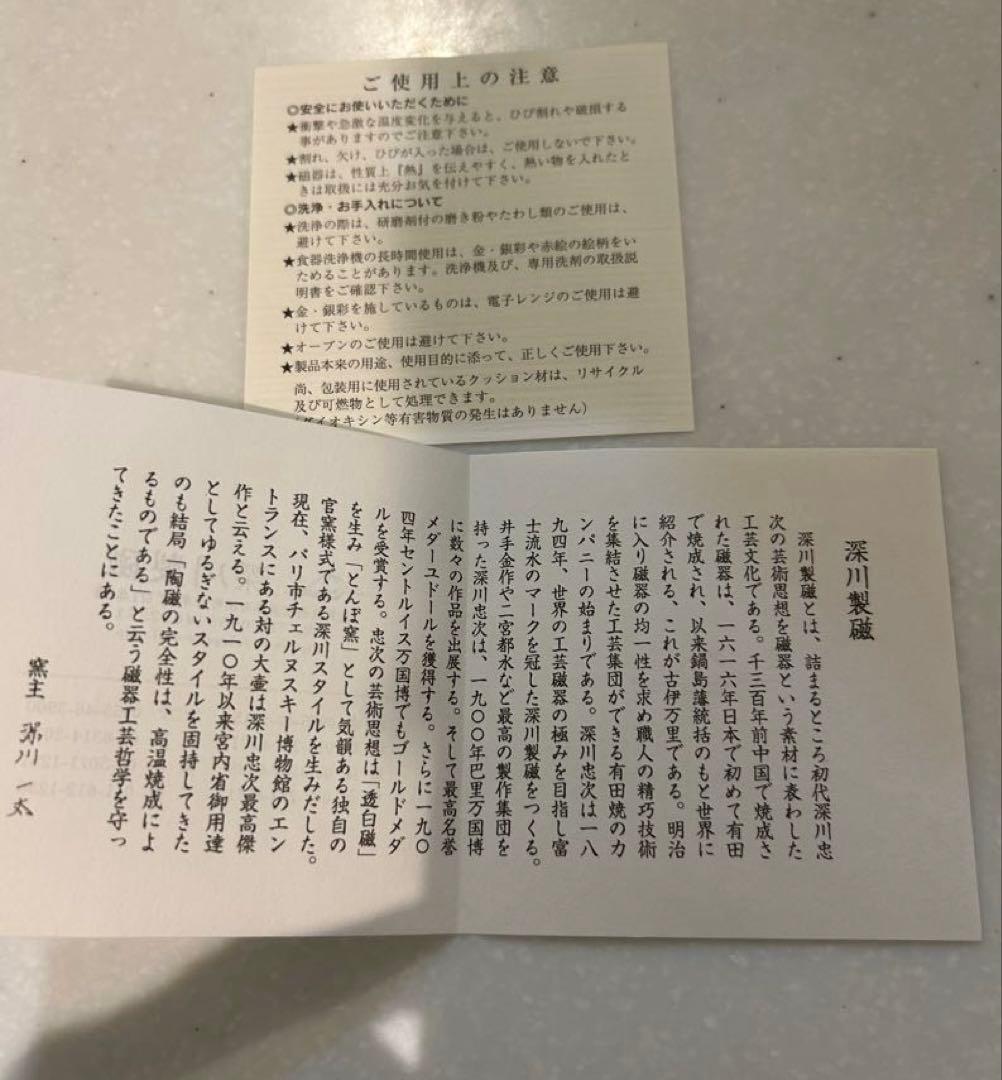 ご使用上の注意
◎安全にお使いいただくために
★衝撃や急激な温度変化を与えると、ひび割れや破損する
事がありますのでご注意下さい。
★割れ、欠け、ひびが入った場合は、ご使用しないで下さい。
★磁器は、性質上『熱』を伝えやすく、熱い物を入れたと
きは取扱には充分お気を付けて下さい。
◎洗浄・お手入れについて
★洗浄の際は、研磨剤付の磨き粉やたわし類のご使用は、
避けて下さい。
★食器洗浄機の長時間使用は、金・銀彩や赤絵の絵柄をい
ためることがあります。洗浄機及び、専用洗剤の取扱説
明書をご確認下さい。
★金・銀彩を施しているものは、電子レンジのご使用は避
けて下さい。
★オーブンのご使用は避けて下さい。
★製品本来の用途、使用目的に添って、正しくご使用下さい。
尚、包装用に使用されているクッション材は、リサイクル
及び可燃物として処理できます。
(ダイオキシン等有害物質の発生はありません)
深川製磁
深川製磁とは、詰まるところ初代深川忠
次の芸術思想を磁器という素材に表わした
工芸文化である。千三百年前中国で焼成さ
れた磁器は、一六一六年日本で初めて有田
で焼成され、以来鍋島藩統括のもと世界に
紹介される、これが古伊万里である。明治
に入り磁器の均一性を求め職人の精巧技術
を集結させた工芸集団ができる有田焼のカ
ンパニーの始まりである。深川忠次は一八
九四年、世界の工芸磁器の極みを目指し富
士流水のマークを冠した深川製磁をつくる。
井手金作や二宮都水など最高の製作集団を
持った深川忠次は、一九〇〇年巴里万国博
に数々の作品を出展する。そして最高名誉
メダーユドールを獲得する。さらに一九〇
四年セントルイス万国博でもゴールドメダ
ルを受賞する。忠次の芸術思想は「透白磁」
を生み「とんぼ窯」として気韻ある独自の
官窯様式である深川スタイルを生みだした。
現在、パリ市チェルヌスキー博物館のエン
トランスにある対の大壷は深川忠次最高傑
作と云える。一九一〇年以来宮内省御用達
としてゆるぎないスタイルを固持してきた
のも結局「陶磁の完全性は、高温焼成によ
るものである」と云う磁器工芸哲学を守っ
てきたことにある。
窯主 深川一太